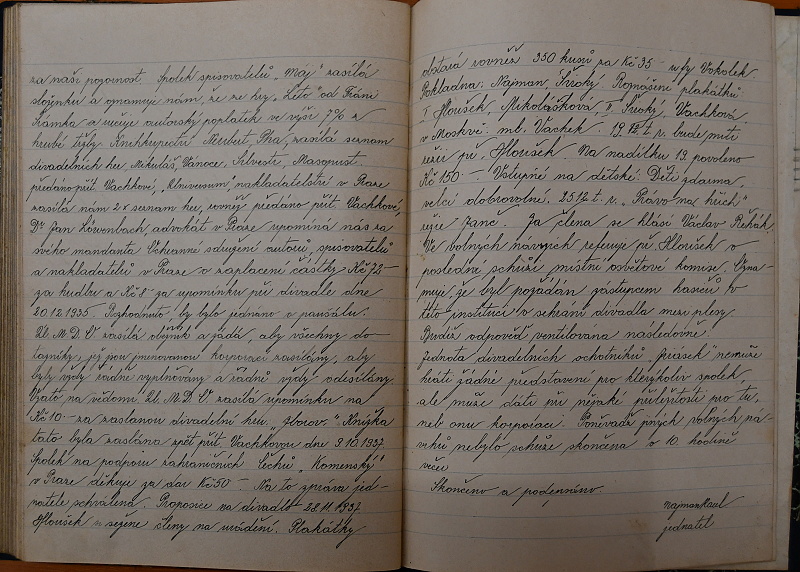 za naši pozornost. Spolek spisovatelů „Máj" zasílá
složenku a oznamuje nám, že ze hry „Léto" od Fráni
Šrámka a určuje autorský poplatek ve výši 7% z
hrubé tržby. Knihkupectví Neubert, Pha, zasílá seznam
divadelních her, Mikuláš, Vánoce, Silvestr, Masopust
předáno přít. Vachkové, „Universum" nakladatelství v Praze
zasílá nám 2x seznam her, rovněž předáno přít. Vachkové,
Dr Jan Löwenbach, advokát v Praze upomíná nás za
svého mandanta Ochranné sdružení autorů, spisovatelů
a nakladatelů v Praze o zaplacení částky Kč 72-
za hudbu a Kč 8- za upomínku při divadle dne
20.12.1935. Rozhodnuto, by bylo jednáno o paušálu.
Ú.M.D.O. zasílá oběžník a žádá, aby všechny do-
tazníky, jež jsou jmenovanou korporací zasílány, aby
byly vždy řádně vyplňovány a řádně vždy odesílány.
Vzato na vědomí. Ú.M.D.O. zasílá upomínku na
Kč 10.- za zaslanou divadelní hru „Zborov." Knížka
tato byla zaslána zpět přít. Vachkovou dne 9.10.1937.
Spolek na podporu zahraničních Čechů „Komenský"
v Praze děkuje za dar Kč 50-. Na to zpráva jed-
natele schválena. Proposice na divadlo 28.11.1937.
Hloušek sežene členy na uvádění. Plakátky
obstará rovněž 350 kusů za Kč 35- u fy Vokolek.
Pokladna: Najman, Široký. Roznášení plakátků
I Hloušek, Mikolášková, II. Široký, Vachková
v Moskvě: ml. Vachek. 19.12 t.r. bude míti
režii př. Hloušek. Na nadílku 19. povoleno
Kč 150.-! Vstupné na dětské: Děti zdarma,
velcí dobrovolné. 25.12.t.r. „Právo na hřích"
režie Janč. Za člena se hlásí Václav Řehák.
Ve volných návrzích referuje př. Hloušek o
poslední schůzi místní osvětové komise. Ozna-
muje, že byl požádán zástupcem hasičů v
této instituci v sehrání divadla mezi plesy.
Budiž odpověď ventilována následovně:
Jednota divadelních ochotníků nemůže
hráti žádné představení pro kterýkoliv spolek,
ale může dáti při nějaké příležitosti pro tu,
neb onu korporaci. Poněvadž jiných volných ná-
vrhů nebylo schůze skončena o 10. hodině
večer.
Skončeno a podepsáno.
Najman Karel
jednatel